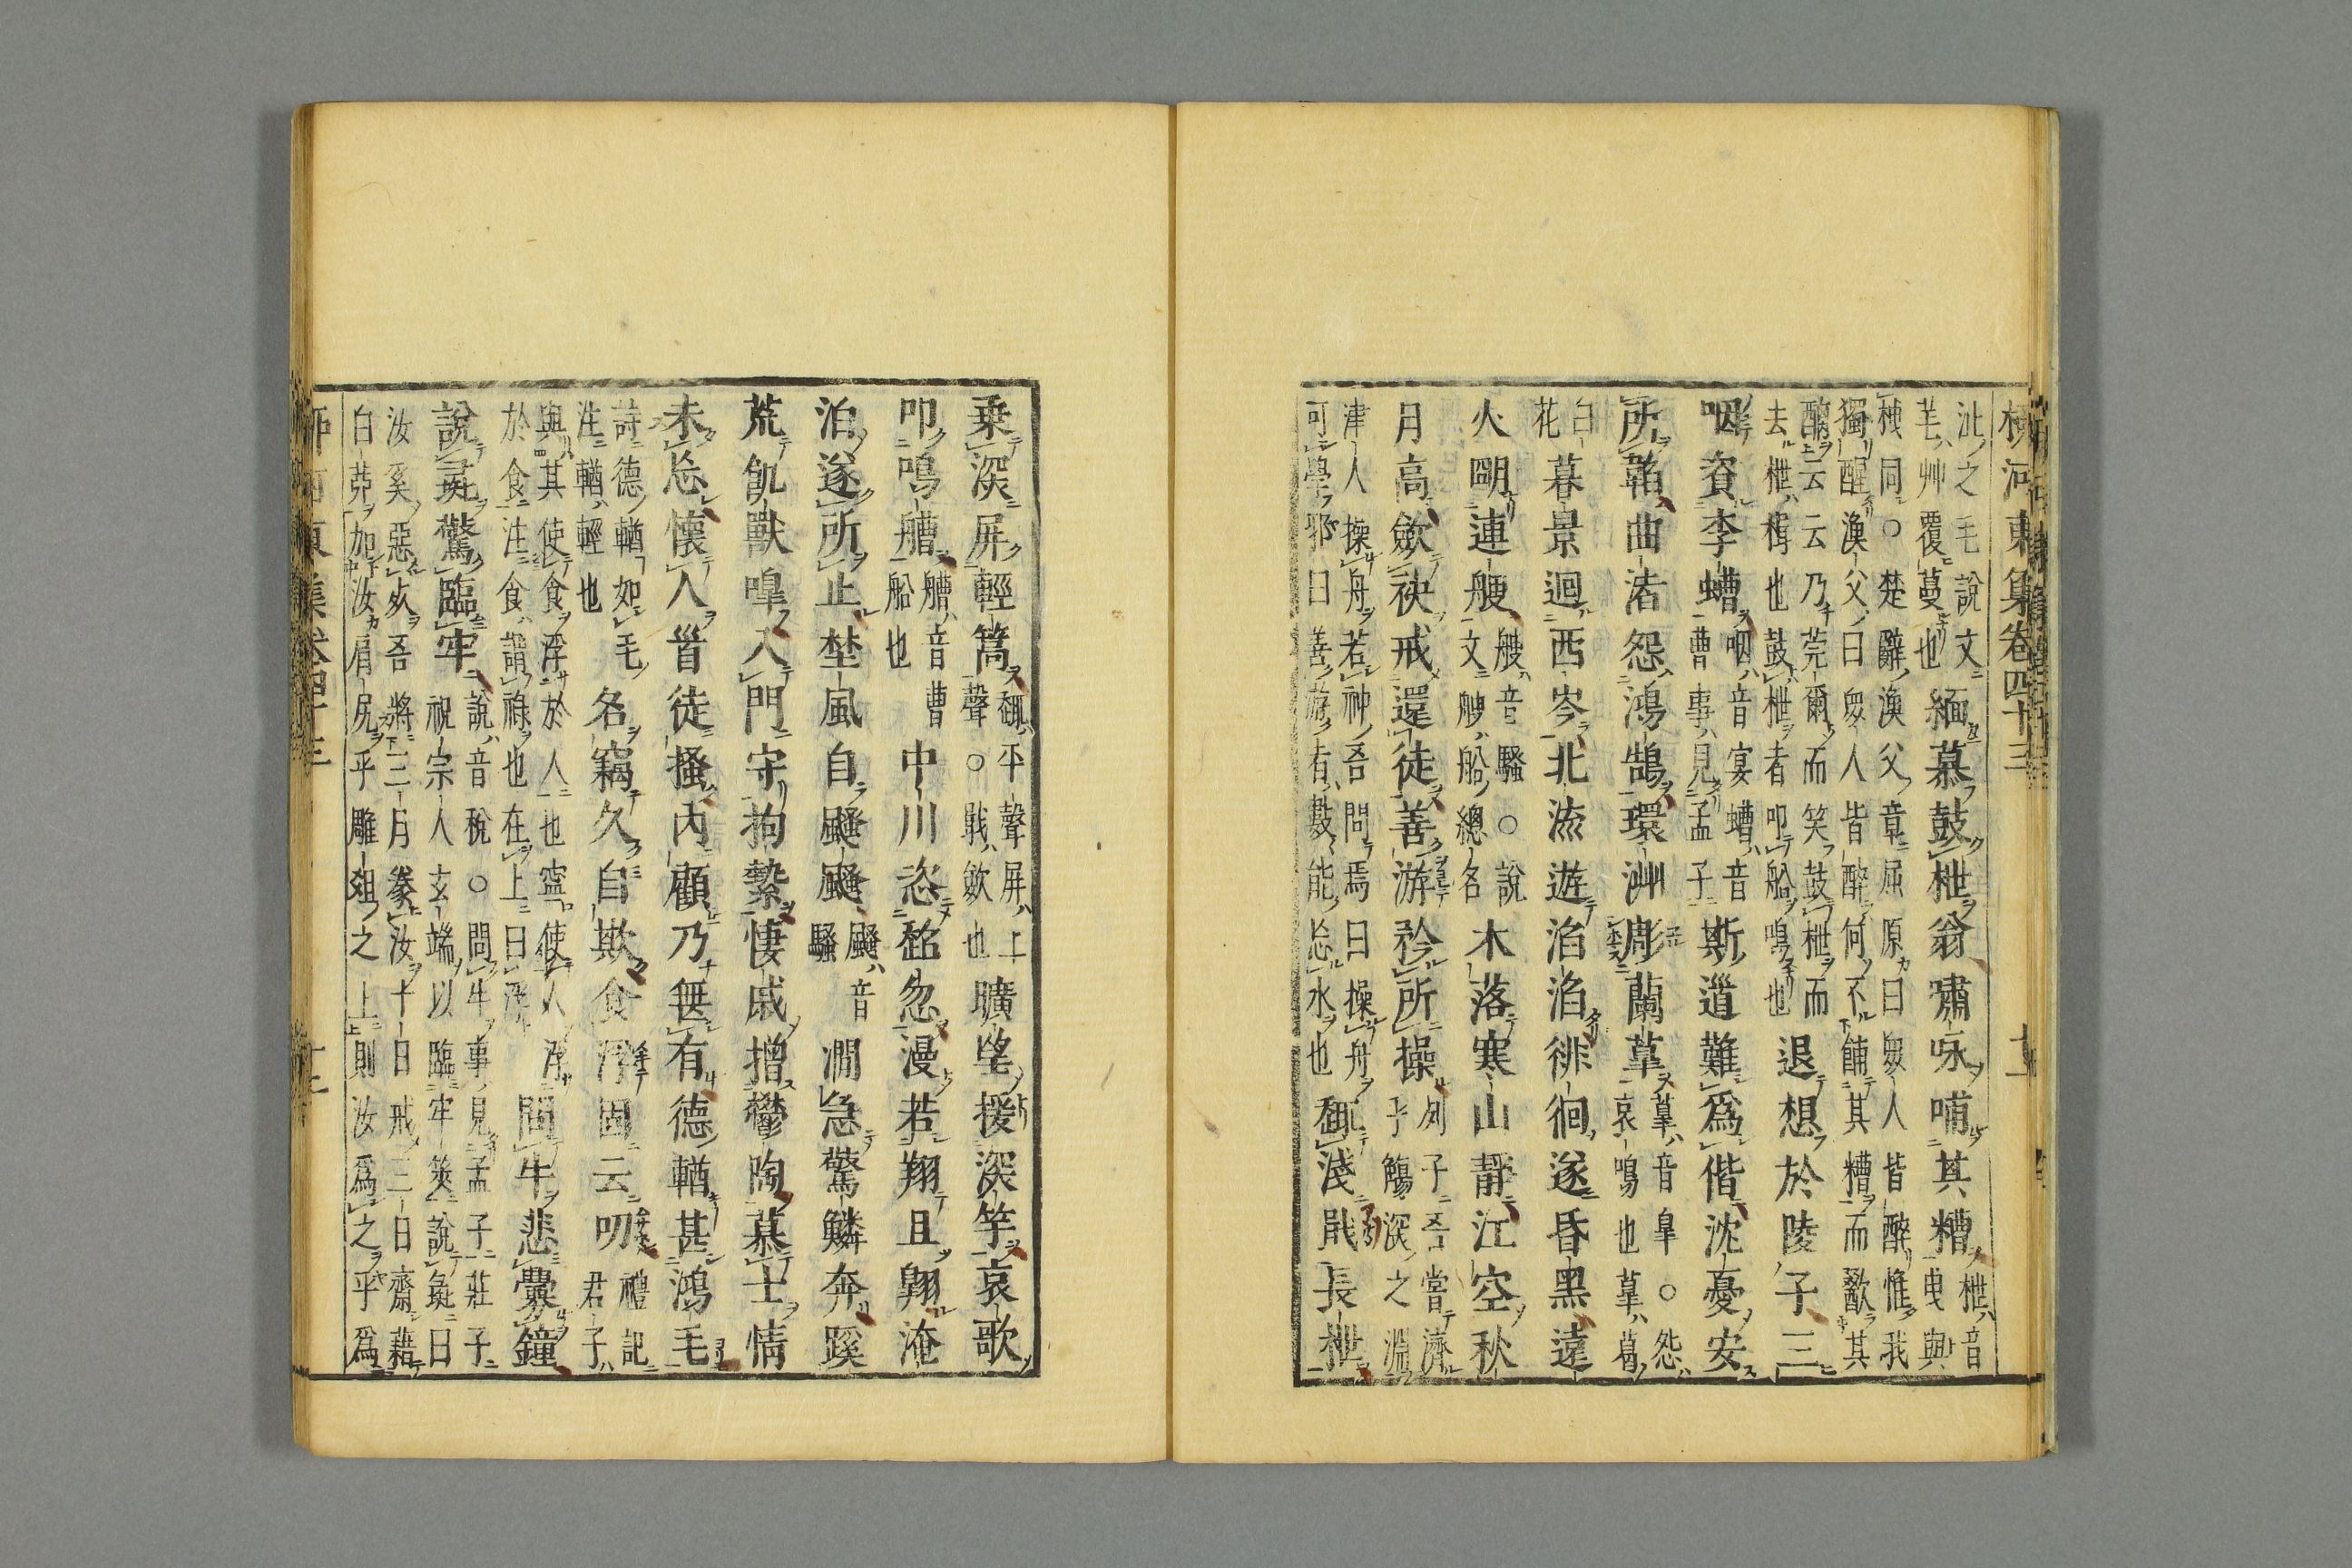 柳河東集卷四十三 十一
沚之毛說文
芼艸覆蔓也
緬慕鼓枻翁嘯咏哺其糟
枻音
曳與
栧同○楚辭漁父章屈原曰衆人皆醉惟我
獨醒漁父曰衆人皆醉何不餔其糟而歠其
醨云云乃莞爾而笑鼓枻而
去枻楫也鼓枻者叩船鳴也
退想於陵子三
咽資李螬
咽音宴螬音
曹事見孟子
斯道難爲偕沈憂安
所韜曲渚怨鴻鵠環洲彫蘭䓘
䓘音皐○怨
哀鳴也䓘葛
白
花
暮景迴西岑北流遊滔滔徘徊遂昏黑遠
火明連艘
艘音騷○說
文艘船總名
木落寒山靜江空秋
月高斂袂戒還徒善游矜所操
列子吾嘗濟
乎觴深之淵
津人操舟若神吾問焉曰操舟
可學邪曰善游者數能忘水也
趣淺戢長枻
乗深屏輕篙
趣平聲屏上
聲○戢斂也
曠望援深竿哀歌
叩鳴艚
艚音曹
船也
中川恣超忽漫若翔且翶淹
泊遂所止野風自颾颾
颾音
騷
澗急驚鱗奔蹊
荒飢獸嘷入門守拘縶悽戚增鬱陶慕士情
未忘懷人首徒搔內顧乃無有德輶甚鴻毛
詩德輶如毛
注輶輕也
名竊久自欺食浮固云叨
禮記
君子
與其使食浮於人也寧使人浮
於食注食謂祿也在上曰浮
問牛悲釁鐘
說彘驚臨牢
說音稅○問牛事見孟子莊子
祝宗人玄端以臨牢筴說彘曰
汝奚惡死吾將三月豢汝十日戒三日齋藉
白茅加汝肩尻乎雕俎之上則汝爲之乎爲
柳河東集卷四十三 十一